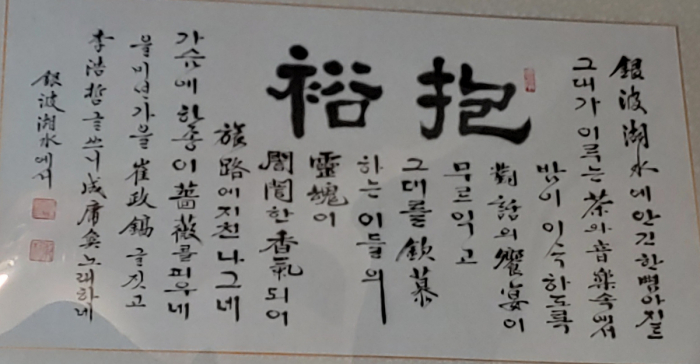 抱裕
銀波湖水에 안긴 한
그대가 이루는 茶와 音樂속에서
밤이 이슥하도록
對話의 饗宴이
무르익고
그대를 欽慕
하는 이들의
靈魂이
誾誾한 香氣되어
旅路에 지친 나그네
가슴에 한송이 薔薇를 피우네
을미년가을 崔政錫 글짓고
李浩哲 글쓰니 成庸奐 노래하네
銀波湖水에서